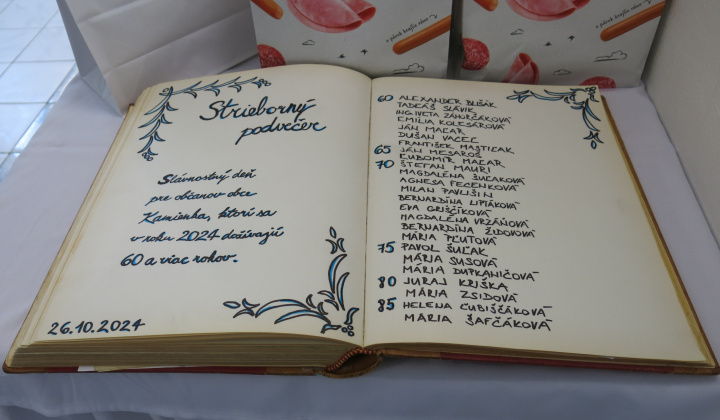 Strieborný
podvečer
Slávnostný deň
pre občanov obce
Kamienka, ktorí sa
v roku 2024 dožívajú
60 a viac rokov.
26.10.2024
60 ALEXANDER DUŠÁK
TADEÁŠ SLÁVIK
ING. IVETA ZÁHORČÁKOVÁ
EMÍLIA KOLESÁROVÁ
JÁN MAĽAR
DUŠAN VACEĽ
FRANTIŠEK MASTIĽAK
65 JÁN MESÁROŠ
ĽUBOMÍR MAĽAR
70 ŠTEFAN MAURI
MAGDALÉNA ŠUĽAKOVÁ
AGNESA FECENKOVÁ
MILAN PAVLIŠIN
BERNARDÍNA LIPTÁKOVÁ
EVA GRIŠČÍKOVÁ
MAGDALÉNA VRZÁŇOVÁ
BERNARDÍNA ŽIDOVOVÁ
MÁRIA PĽUTOVÁ
75 PAVOL ŠUĽAK
MÁRIA SUSOVÁ
MÁRIA DUPKANIČOVÁ
80 JURAJ KRIŠKA
MÁRIA ZSIDOVÁ
85 HELENA ĽUBIŠČÁKOVÁ
MÁRIA ŠAFČÁKOVÁ